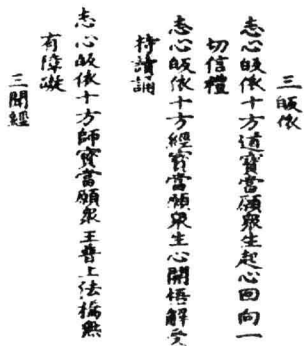 三皈依
志心皈依十方道寶當願衆生起心回向一
切信禮
志心皈依十方經寶當願衆生心開悟解受
持讀誦
志心皈依十方師寶當願衆王普上法橋無
有障礙
三開經